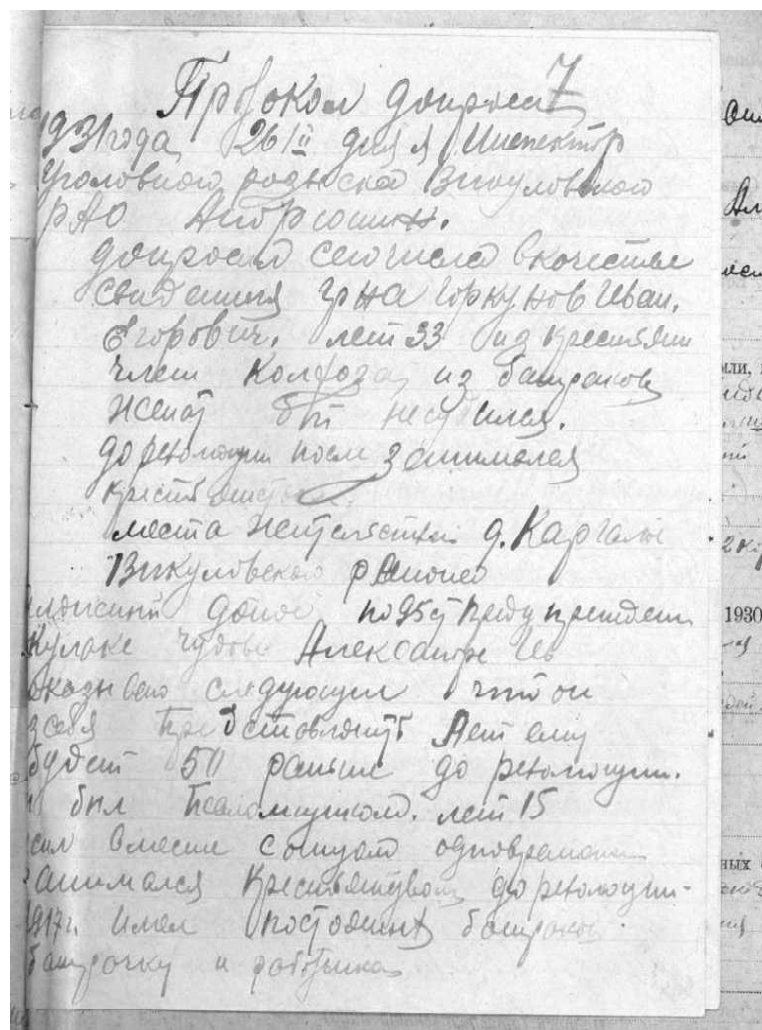 7
Протокол допроса
1931 года 26/II дня я Инспектор
Уголовного розыска Викуловского
РАО
допросил сего числа в качестве
свидетеля гр-на Горкунов Иван
Егорович. лет 33 из крестьян
член Колхоза из батраков
женат был несудился.
до революции после занимался
крестьянством
места жительства д. Каргалы
Викуловского района
по 95 ст предупрежден
Кулаке Чудове Александре
следующее что он
з себя представляит Лет ему
будет 50 раньше до революции.
был Псаломщиком. лет 15
вместе с отцом одновремено
занимался Крестьянством до революции
1917 г. имел постоянных батраков
батрачку и работника
1930